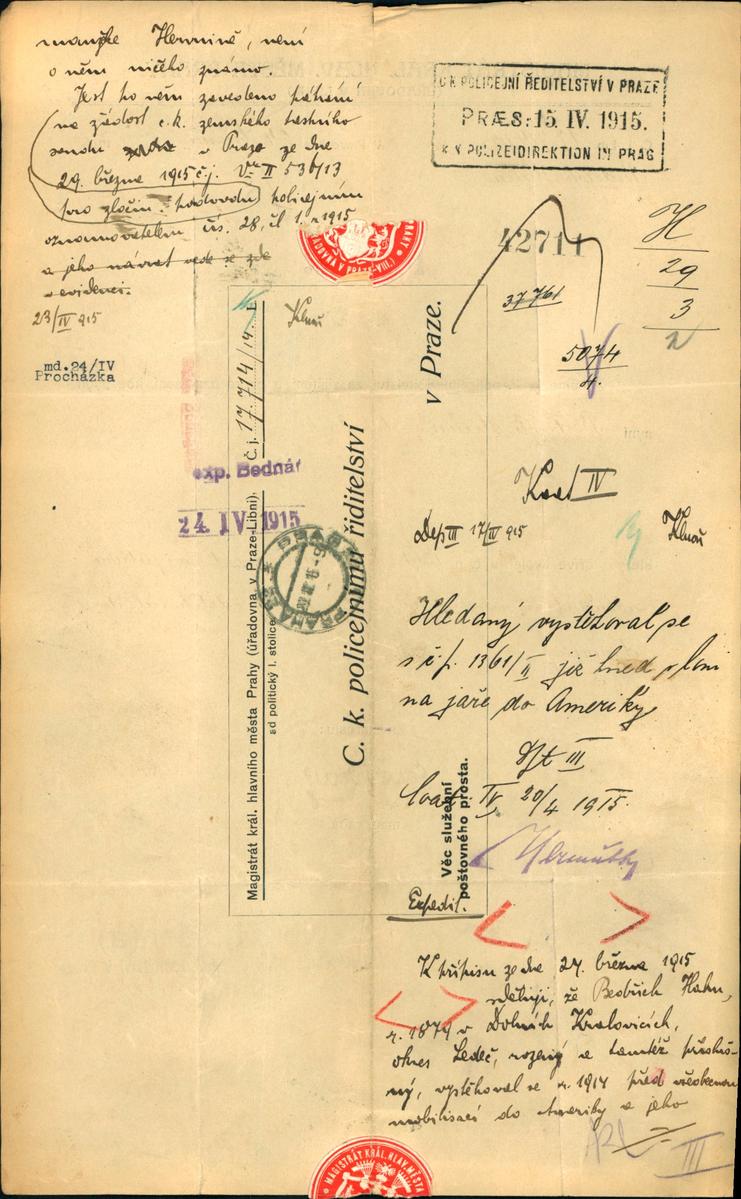 manžce Hermině, není
o něm ničeho známo.
Jest ho něm zavedeno pátrání
na žádost c.k. zemského trestního
soudu v Praze ze dne
29. března 1915 č.j. Vr II 536/13
pro zločin podvodu policejním
oznamovatelem čís. 28, čl 1. r 1915
a jeho návrat vede se zde
v evidenci.
23/IV 915
md.24/IV
Procházka
C.K. POLICEJNÍ ŘEDITELSTVÍ V PRAZE
PRÆS: 15. IV. 1915.
K.K. POLIZEIDIREKTION IN PRAG
42711
37761
5074
4.
H
29
3
Magistrát král. hlavního města Prahy (úřadovna v Praze-Libni). Č. j. 17.714/14
ad politický I. stolice
C. k. policejnímu řiditelství
v Praze.
Věc služební
poštovného prosta.
exp. Bednář
24. IV. 1915
PRAHA
Koat IV
Dep III 17/IV 915
Hledaný vystěhoval se
s č.p. 1361/II již hned v loni
na jaře do Ameriky
IV 20/4 1915.
Expedit.
K přípisu ze dne 27. března 1915
sděluji, že Bedřich Hahn,
r. 1879 v Dolních Kralovicích,
okres Ledeč, rozený a tamtéž přísluš-
ný, vystěhoval se r. 1914 před všeobecnou
mobilisací do Ameriky a jeho
III
MAGISTRÁT KRÁL. HLAV. MĚSTA